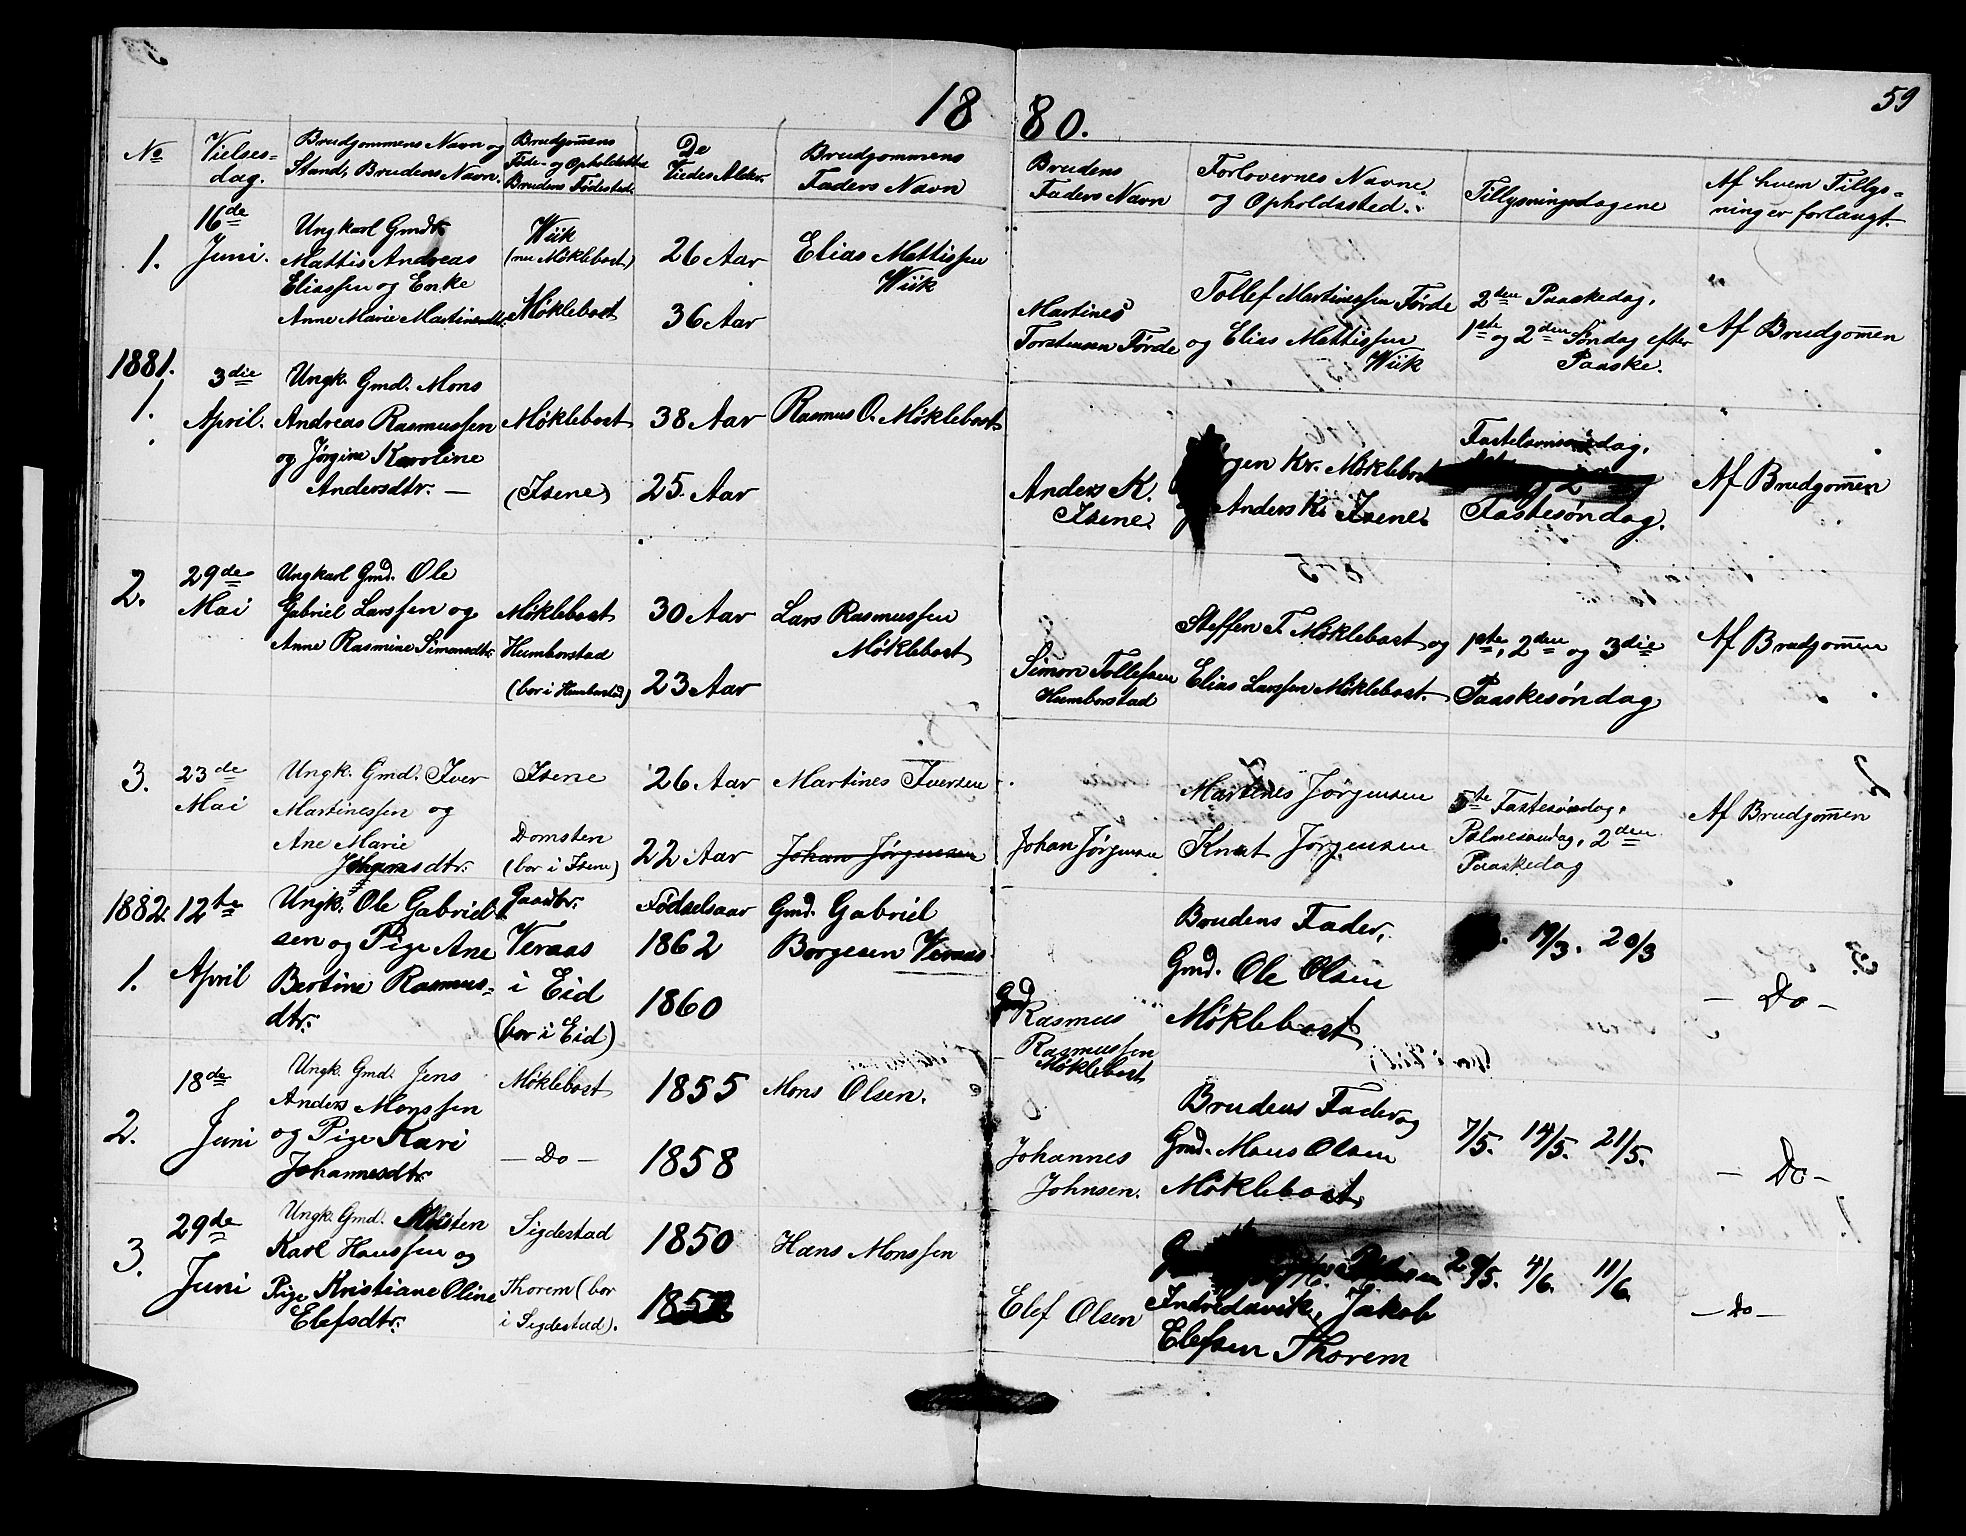 59
18 80.
No
Vielses-
dag.
Brudgommens Navn og
Stand, Brudens Navn.
Brudgom̅ens
Føde- og Opholdssted
Brudens Fødested.
De
Viedes Alder.
Brudgommens
Faders Navn
Brudens
Faders Navn
Forlovernes Navne
og Opholdssted.
Tillysningsdagene
Af hvem Tillys-
ning er forlangt.
1.
16de
Juni.
Ungkarl Gmdk
Mattis Andreas
Eliassen og Enke
Anne Marie Martinesdtr.
Wiik
(nu Möklebost)
Møklebost
26 Aar
36 Aar
Elias Mattissen
Wiik
Martines
Torstensen Førde
Tollef Martinessen Førde
og Elias Mattissen
Wiik
2den Paaskedag,
1ste og 2den Søndag efter
Paaske.
Af Brudgom̅en
1881.
1.
3die
April.
Ungk. Gmd. Mons
Andreas Rasmussen
og Jørgine Karoline
Andersdtr. —
Møklebost
(Isene)
38 Aar
25 Aar
Rasmus O. Møklebost
Anders K.
Isene.
Kr. Møklebost
Anders K. Isene.
Fastelavnssøndag,
2
Fastesøndag.
Af Brudgom̅en
2.
29de
Mai
Ungkarl Gmd. Ole
Gabriel Larssen og
Anne Rasmine Simonsdtr.
Møklebost
Humborstad
(bor i Humborstad)
30 Aar
23 Aar
Lars Rasmussen
Møklebost
Simon Tollefsen
Humborstad
Steffen F. Møklebost og
Elias Larssen Møklebost.
1ste, 2den og 3die
Paaskesøndag
Af Brudgom̅en
3.
23de
Mai
Ungk. Gmd. Iver
Martinessen og
Ane Marie
Johansdtr.
Isene
Domsten
(bor i Isene)
26 Aar
22 Aar
Martines Iversen
Johan Jørgensen
Johan Jørgensen
Martines Jørgensen
Knut Jørgensen
5te Fastesøndag,
Palmesøndag, 2den
Paaskedag
Af Brudgom̅en
1882.
1.
12te
April
Ungk. Ole Gabriel-
sen og Pige Ane
Bertine Rasmus-
dtr.
Gaardbr.
Veraas
i Eid
(bor i Eid)
Fødselsaar
1862
1860
Gmd. Gabriel
Borgesen Veraas
Gmd
Rasmus
Rasmussen
Møklebost
Brudens Fader,
Gmd. Ole Olsen
Møklebost
19/3. 20/3
— Do —
2.
18de
Juni
Ungk. Gmd. Jens
Anders Monssen
og Pige Kari
Johannesdtr.
Møklebost
— Do —
1855
1858
Mons Olsen.
Johannes
Johnsen.
Brudens Fader og
Gmd. Mons Olsen
Møklebost
7/5. 14/5. 21/5.
— Do —
3.
29de
Juni
Ungk. Gmd.
Karl Hanssen og
Pige Kristiane Oline
Elefsdtr.
Sigdestad
Thorem (bor
i Sigdestad).
1850
Hans Monssen
Elef Olsen
Indredavik, Jakob
Elefsen Thorem
29/5. 4/6. 11/6.
— Do —